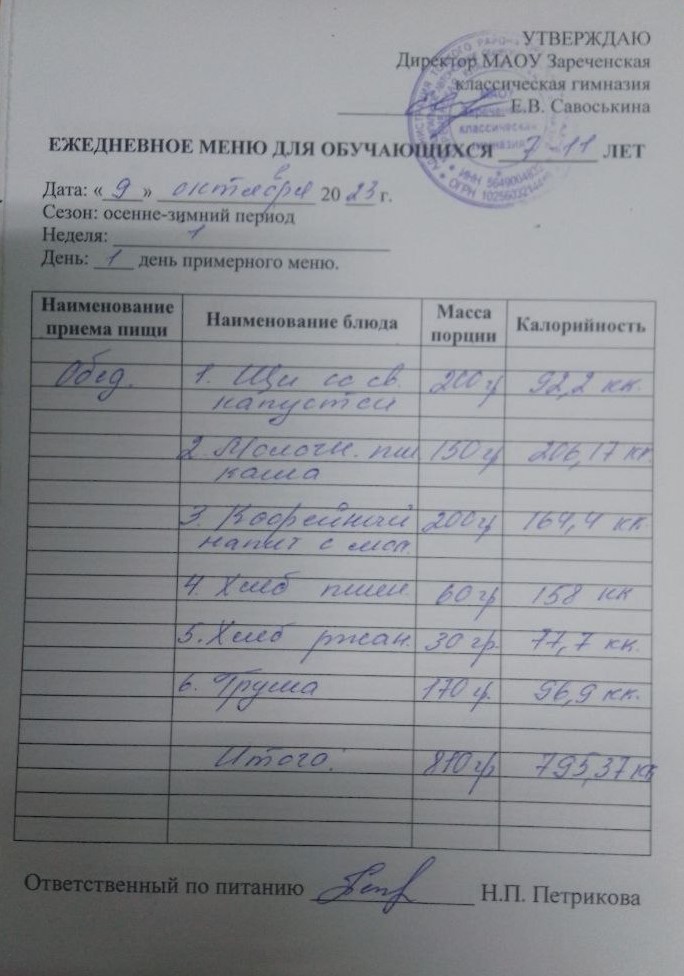 УТВЕРЖДАЮ
Директор МАОУ Зареченская
классическая гимназия
Е.В. Савоськина
ЕЖЕДНЕВНОЕ МЕНЮ ДЛЯ ОБУЧАЮЩИХСЯ 7-11 ЛЕТ
Дата: «9» октября 2023 г.
Сезон: осенне-зимний период
Неделя: 1
День: 1 день примерного меню.
Наименование приема пищи Наименование блюда Масса порции Калорийность
Обед. 1. Щи со св. 200 гр 92,2 кк.
капустой
2. Молочн. пш 150 гр 206,17 кк.
каша
3. Кофейный 200 гр 164,4 кк.
напит с мол.
4. Хлеб пшен. 60 гр 158 кк
5. Хлеб ржан. 30 гр. 77,7 кк.
6. Груша 170 гр. 96,9 кк.
Итого: 810 гр 795,37 кк
Ответственный по питанию Н.П. Петрикова